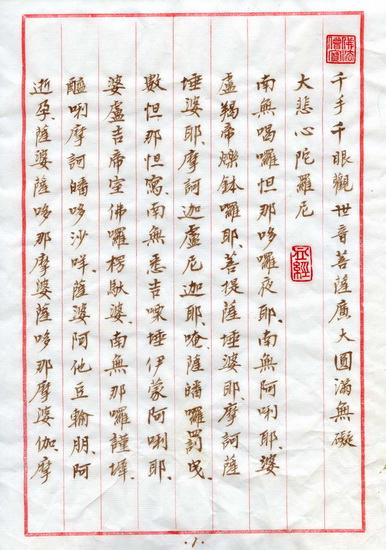 千手千眼觀世音菩薩廣大圓滿無礙
大悲心陀羅尼
南無喝囉怛那哆囉夜耶、南無阿唎耶、婆
盧羯帝爍鉢囉耶、菩提薩埵婆耶、摩訶薩
埵婆耶、摩訶迦盧尼迦耶、唵、薩皤囉罰曳、
數怛那怛寫、南無悉吉㗚埵伊蒙阿唎耶、
婆盧吉帝室佛囉楞馱婆、南無那囉謹墀、
醯唎摩訶皤哆沙咩、薩婆阿他豆輸朋、阿
逝孕、薩婆薩哆那摩婆薩哆那摩婆伽、摩
·1·